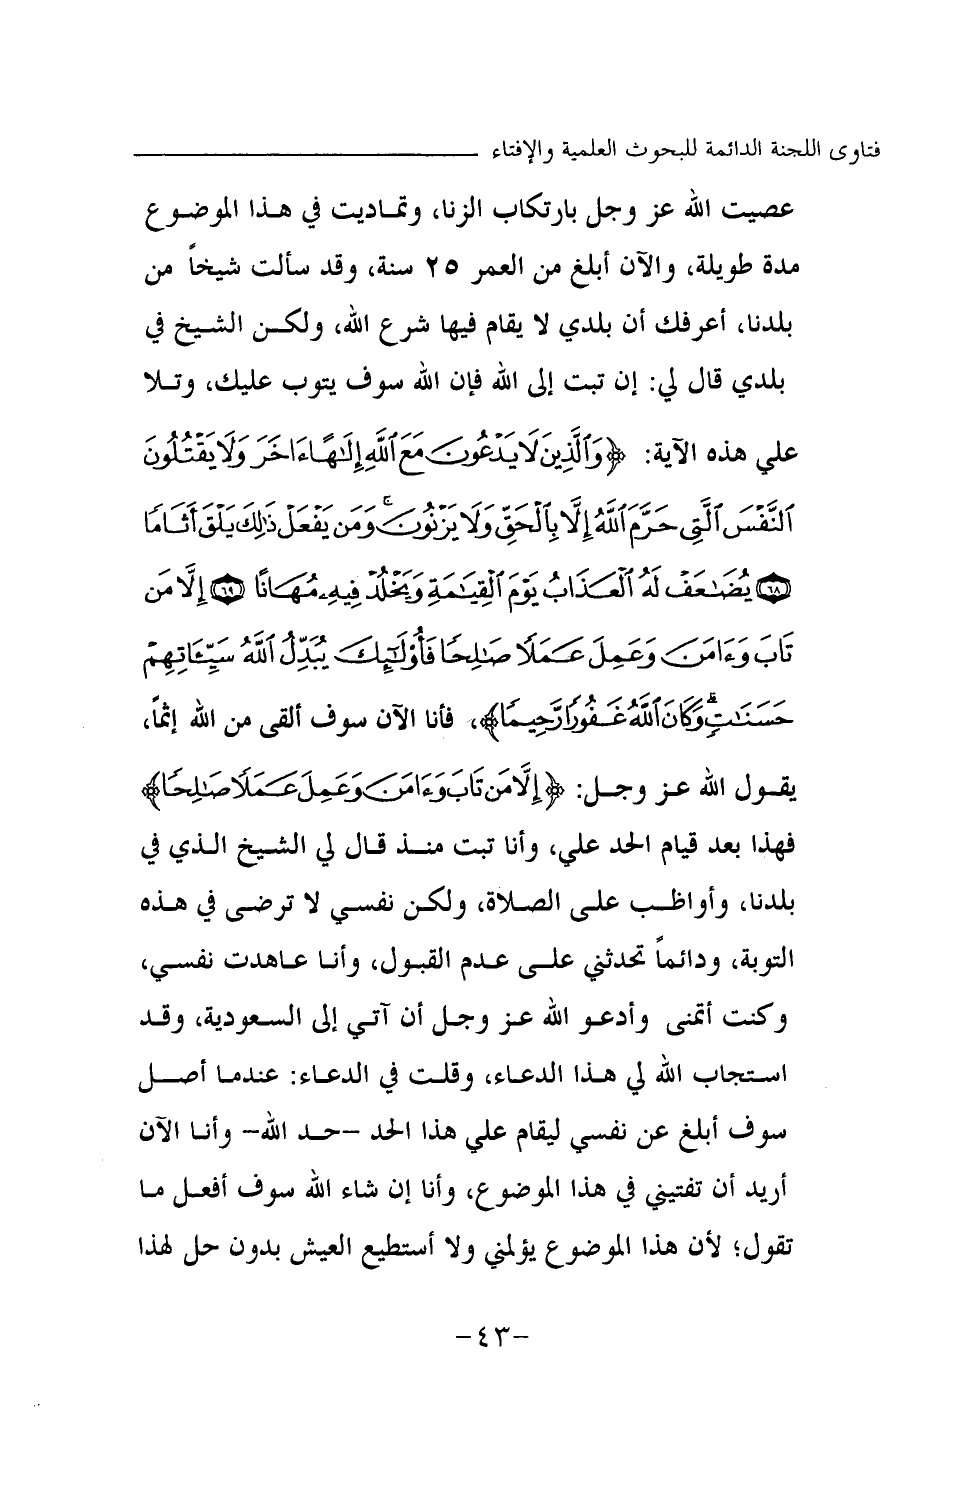 فتاوى اللجنة الدائمة للبحوث العلمية والإفتاء
عصيت الله عز وجل بارتكاب الزنا، وتماديت في هذا الموضوع
مدة طويلة، والآن أبلغ من العمر ٢٥ سنة، وقد سألت شيخاً من
بلدنا، أعرفك أن بلدي لا يقام فيها شرع الله، ولكن الشيخ في
بلدي قال لي: إن تبت إلى الله فإن الله سوف يتوب عليك، وتلا
علي هذه الآية: ﴿وَٱلَّذِينَ لَا يَدْعُونَ مَعَ ٱللَّهِ إِلَـٰهًا ءَاخَرَ وَلَا يَقْتُلُونَ
ٱلنَّفْسَ ٱلَّتِى حَرَّمَ ٱللَّهُ إِلَّا بِٱلْحَقِّ وَلَا يَزْنُونَ ۚ وَمَن يَفْعَلْ ذَٰلِكَ يَلْقَ أَثَامًا
﴿٦٨﴾ يُضَـٰعَفْ لَهُ ٱلْعَذَابُ يَوْمَ ٱلْقِيَـٰمَةِ وَيَخْلُدْ فِيهِۦ مُهَانًا ﴿٦٩﴾ إِلَّا مَن
تَابَ وَءَامَنَ وَعَمِلَ عَمَلًا صَـٰلِحًا فَأُو۟لَـٰٓئِكَ يُبَدِّلُ ٱللَّهُ سَيِّـَٔاتِهِمْ
حَسَنَـٰتٍ ۗ وَكَانَ ٱللَّهُ غَفُورًا رَّحِيمًا﴾، فأنا الآن سوف ألقى من الله إثماً،
يقول الله عز وجل: ﴿إِلَّا مَن تَابَ وَءَامَنَ وَعَمِلَ عَمَلًا صَـٰلِحًا﴾
فهذا بعد قيام الحد علي، وأنا تبت منذ قال لي الشيخ الذي في
بلدنا، وأواظب على الصلاة، ولكن نفسي لا ترضى في هذه
التوبة، ودائماً تحدثني على عدم القبول، وأنا عاهدت نفسي،
وكنت أتمنى وأدعو الله عز وجل أن آتي إلى السعودية، وقد
استجاب الله لي هذا الدعاء، وقلت في الدعاء: عندما أصل
سوف أبلغ عن نفسي ليقام علي هذا الحد -حد الله- وأنا الآن
أريد أن تفتيني في هذا الموضوع، وأنا إن شاء الله سوف أفعل ما
تقول؛ لأن هذا الموضوع يؤلمني ولا أستطيع العيش بدون حل لهذا
-٤٣-